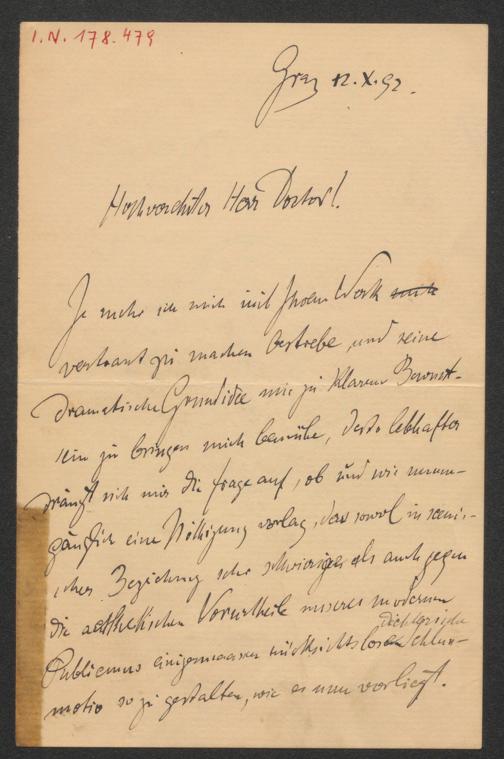 I.N. 178.479
Graz 12.X.92.
Hochverehrter Herr Doctor!
Je mehr ich mich mit Ihrem Werk
vertraut zu machen bestrebe, und seine
dramatische Grundidee mir zu klarem Bewusst-
sein zu bringen mich bemühe, desto lebhafter
drängt sich mir die Frage auf, ob und wie unum-
gänglich eine Nöthigung vorlag, das sowol in sceni-
scher Beziehung sehr schwierige als auch gegen
die aesthetischen Vorurtheile unseres modernen
Publicums einigermaassen rücksichtslose Schluss-
motiv so zu gestalten, wie es nun vorliegt.